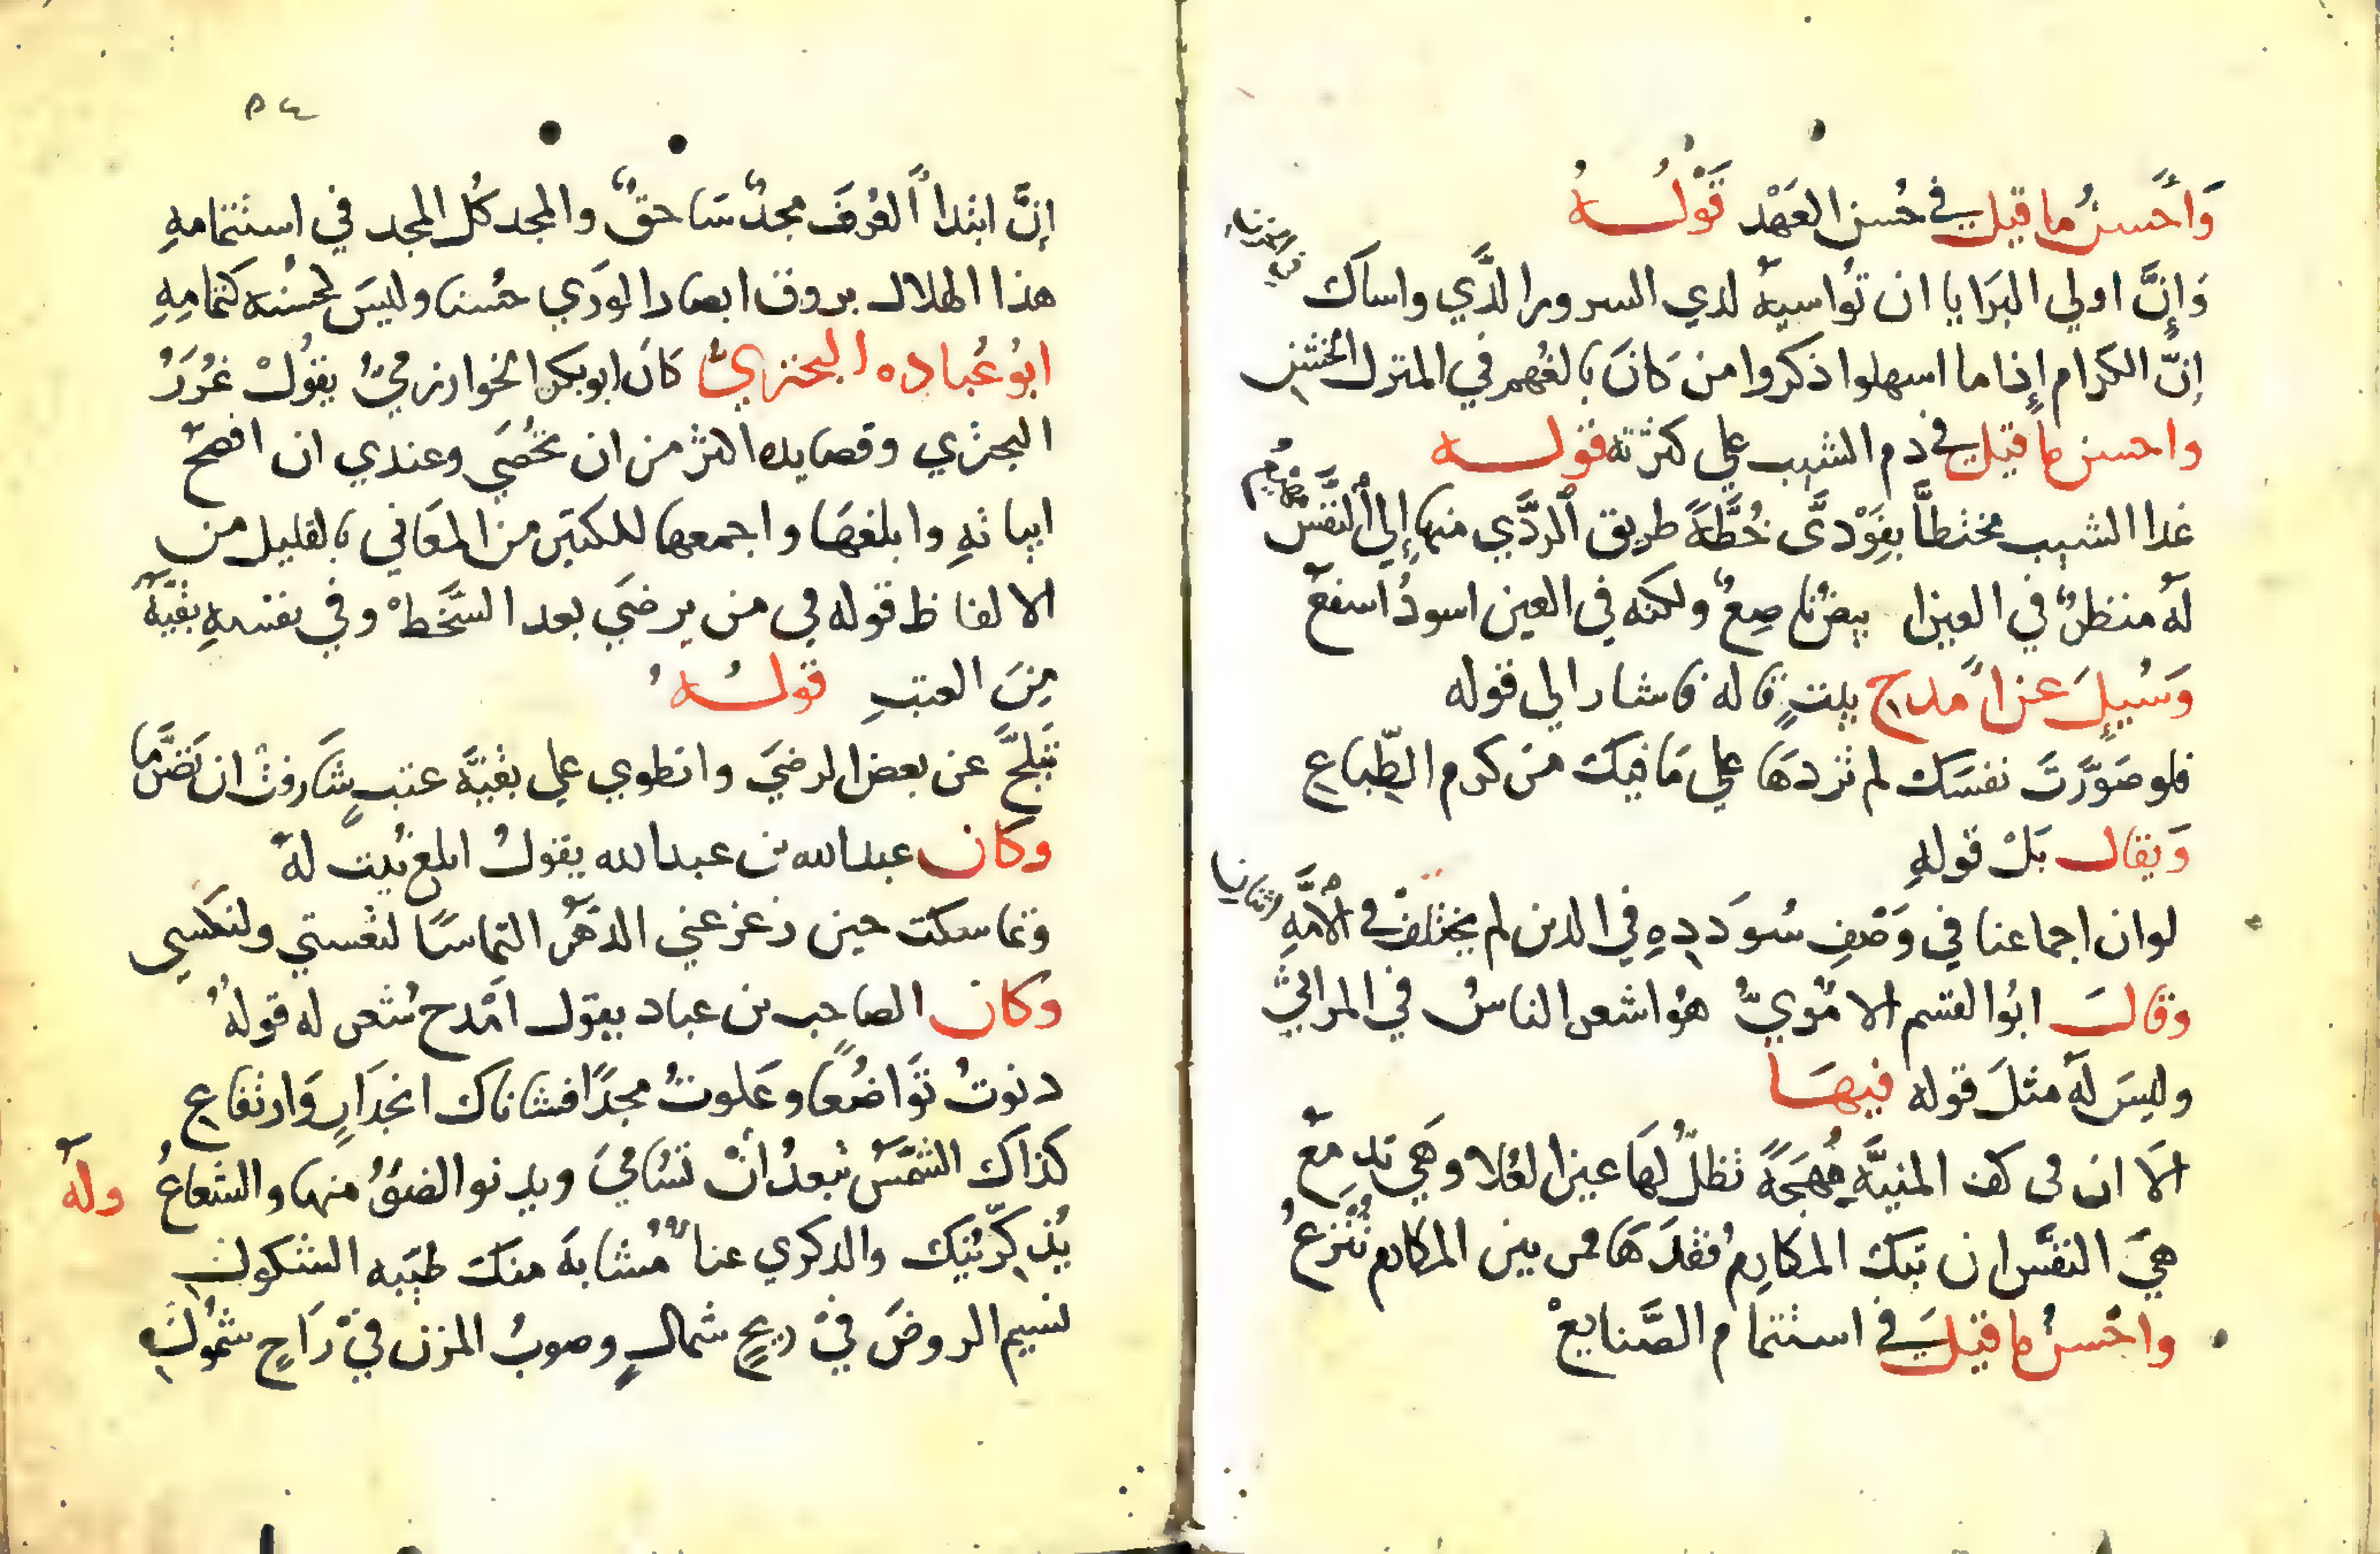 وَاَحسنُ ما قيل في حُسن العَهْد قَوْلُـــهُ
وَإنَّ اولي البَرَايا ان تُواسيهُ لدي السرور الذَّي واساكَ في الحزن
إنَّ الكرام إذا ما اسهلوا ذكروا من كَانَ يالفُهم في المنزل الخشن
واحسن ما قيل في ذم الشيب علي كثرته قولـــه
غدا الشيب مختطاًّ بفَوْدىَّ خُطَّةً طريق اْلردَّي منها إلي اْلنَّفس مهيع
لهُ منظرٌ في العين ابيضُ ناصِعٌ ولكنه في العين اسودُ اسفعُ
وَسُيِلَ عن اَمدح بيتٍ قاله فاشار الي قوله
فلو صَوَّرتَ نفسَك لم تزدهَا علي مَا فيكَ من كرم الطِّباعِ
وَيقال بَلْ قولهِ
لو ان اجماعنا في وَصْفِ سُوَددِهِ في الدين لم يختلفْ في الاُمَّهِ اثنانِ
وقالَ ابُوا لقسم الا مُويُّ هُوا شعر الناسُ في المراثيْ
وليسَ لهُ مثلَ قوله فيهَـــا
الَا ان في كف المنيَّهِ مُهجَةً تظلُّ لهَا عين العُلا وهَي تدمعُ
هيَ النفسُ ان تبك المكارِمُ فقدَهَا فمن بين المكارم تُنْزعُ
واحْسنُ ما قيلَ في استتمام الصَّنايعْ
٥٤
إنَّ ابتدا اَلعُرفَ مجدٌ سَاحقٌ والمجد كُل المجد في استتمامهِ
هذا الهلال يروق ابصار الورَي حُسنا وليسَ لحُسْنه كتمامِهِ
ابُو عُباده البحتريُّ كانَ ابو بكر الخوارزميُّ يقُولْ غُرَرُ
البحتري وقصايده اكثر من ان تحُصَي وعندي ان افصحَ
ابياتهِ وابلغهَا واجمعها للكثير من المعَاني بالقليل من
الالفاظ قوله في من يرضَي بعد السَّخَطْ وفي نفسهِ بقيَّهُ
مِنَ العتبِ قولـــهُ
تبلَّجَ عن بعض الرضيَ وانطوي علي بقيَّه عتبٍ شَارفتْ ان تَصَرَّما
وكان عبد الله بن عبد الله يقولُ ابلغ بَيت لهُ
وتماسكت حين زعزعني الدَّهرُ التماسًا لتعستي ولنكسِي
وكان الصاحب بن عباد يقول اَمْدح شعر له قولهُ
دنوتُ تَوَاضُعًا وعَلوتُ مجدًا فشاناك انحدَارٍ وَارتفاعِ
كذاكَ الشَّمسُ تبعدُ انْ تُسَامَي ويدنو الضوُ منها والشعاعُ
ولهُ
يُذكِّرنيَك والذكري عناٌ مُشابهَ منكَ طيَبه الشكولِ
نسيم الروضَ فيْ ريحٍ شمالٍ وصوبُ المزن فيْ رَاحٍ شَمُولِ